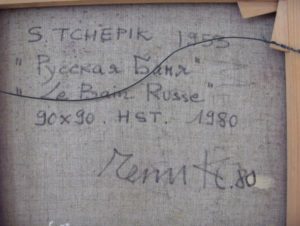 S. TCHEPIK 1953
"Русская Баня"
"Le Bain Russe"
90x90. HST. 1980
80